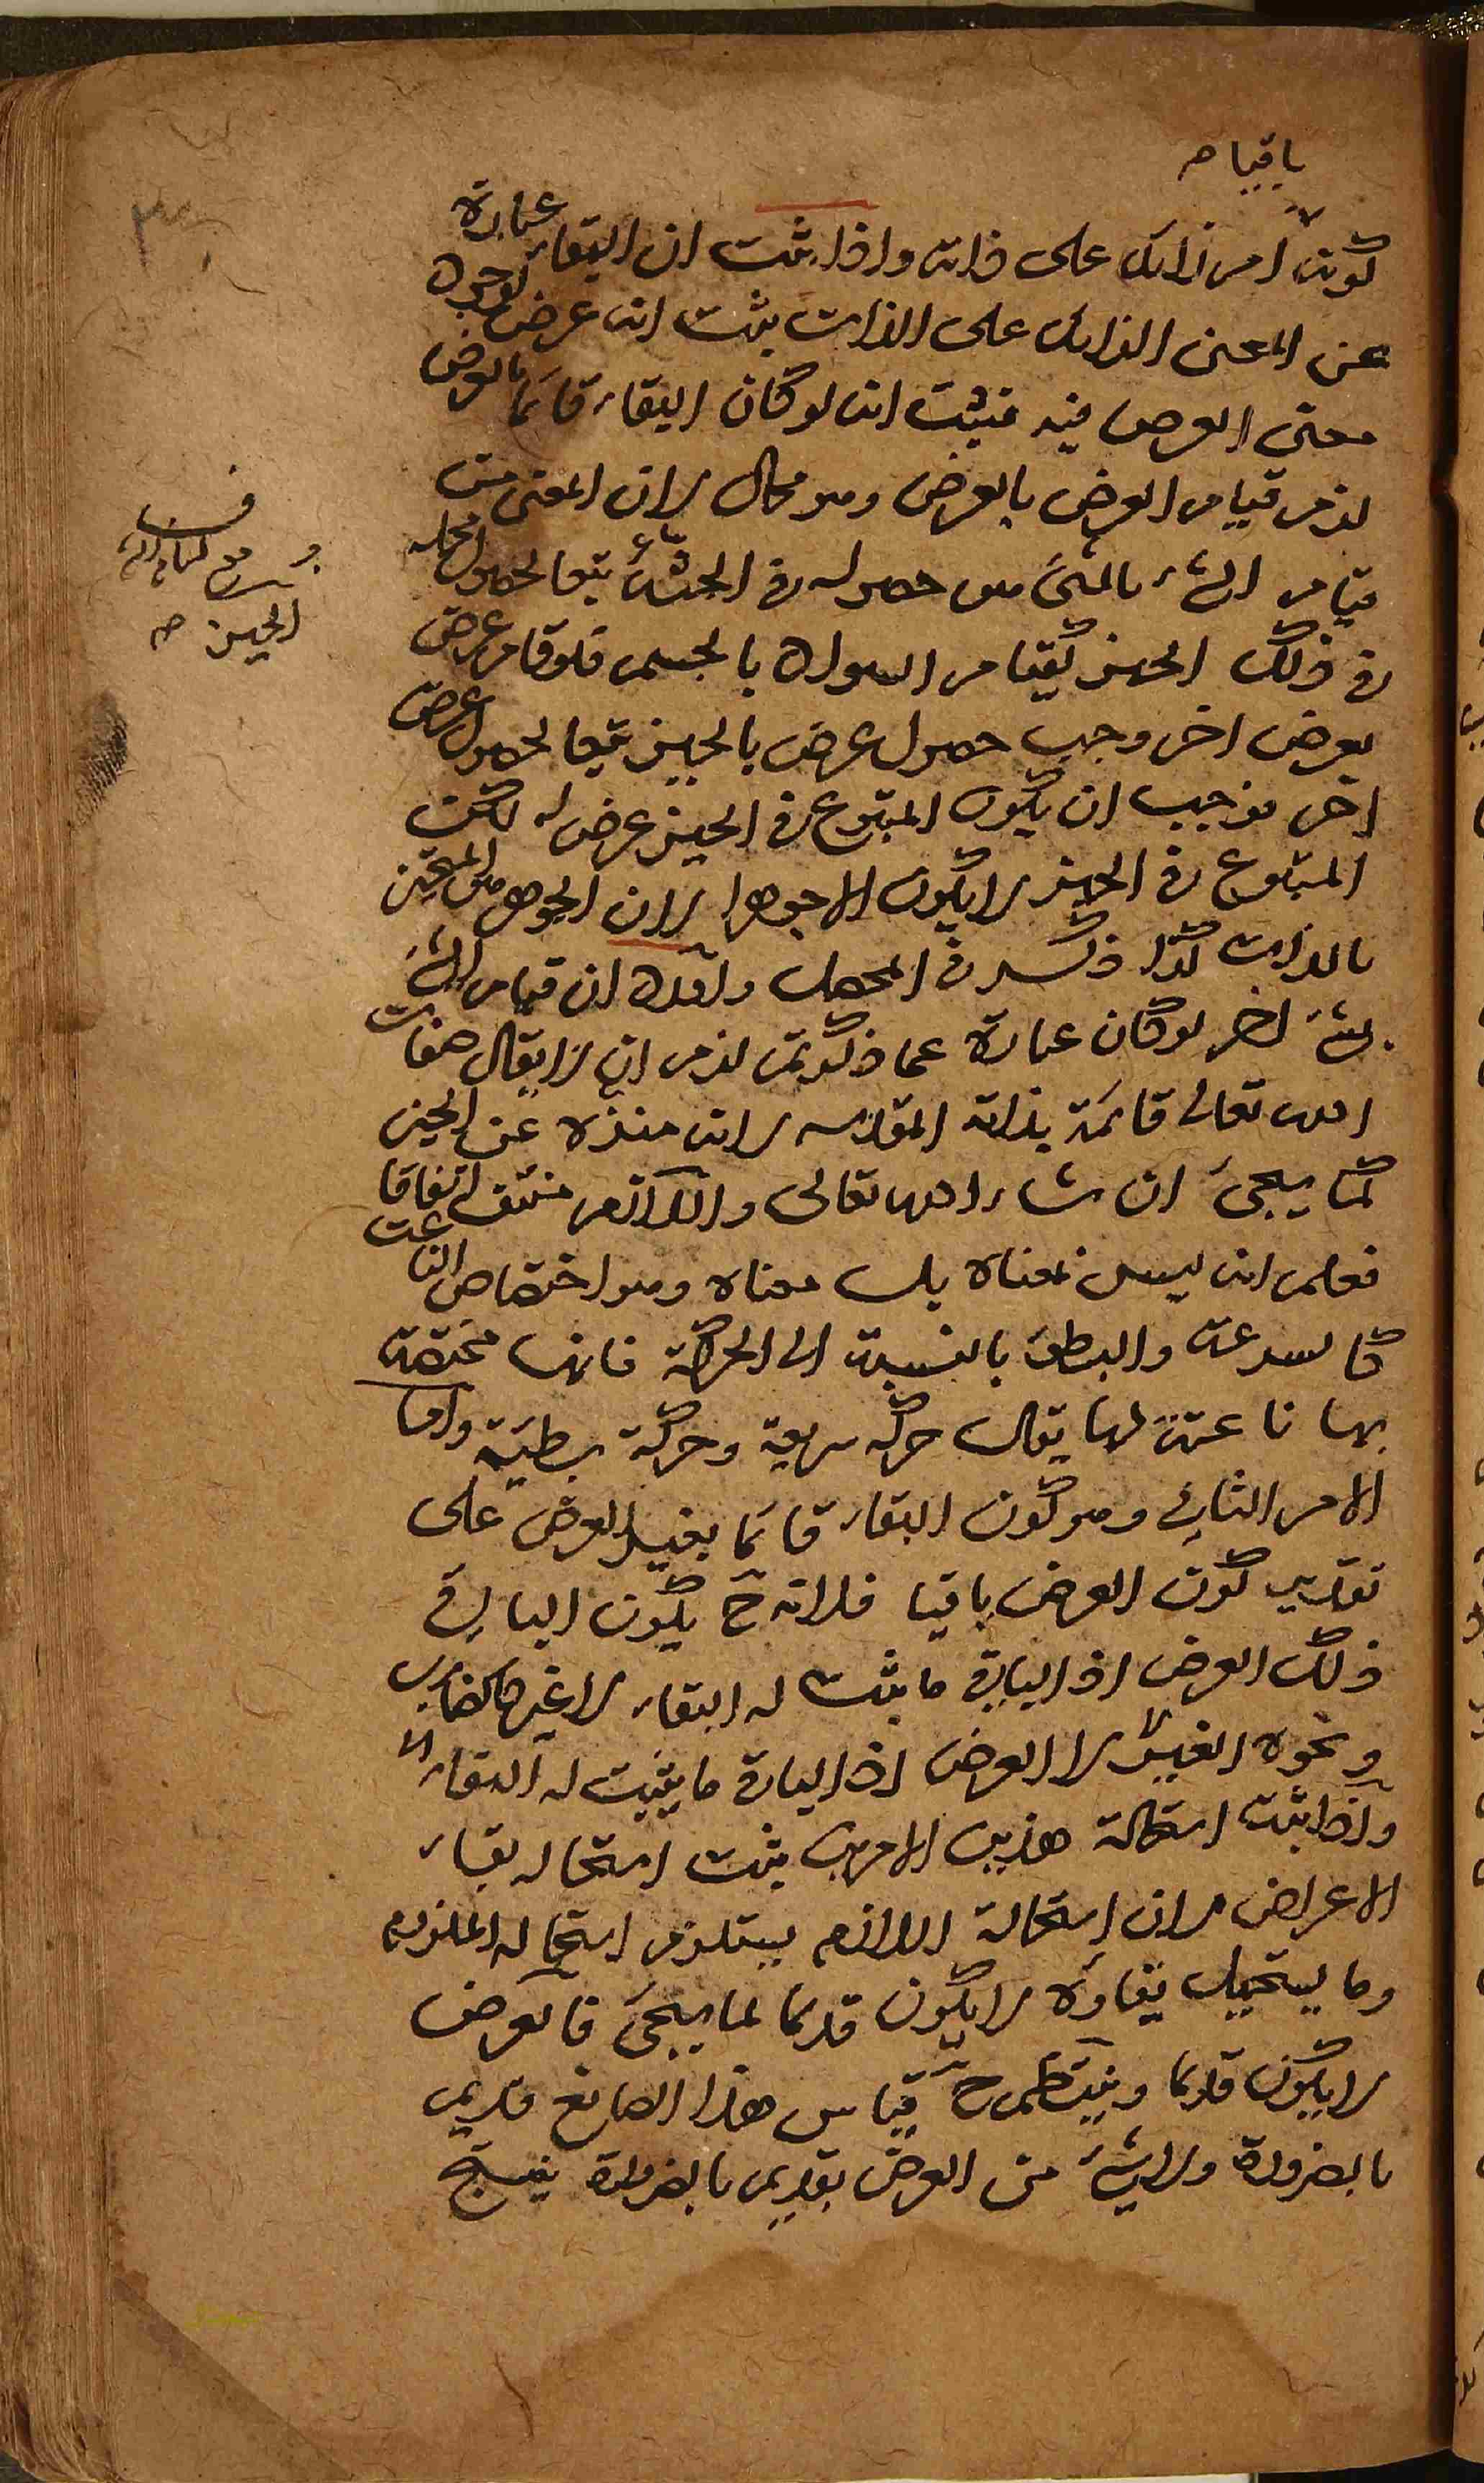 باقيا صح
كونه امر زائد على ذاته واذا ثبت ان البقاء عبارة
عن المعنى الزائد على الذات يثبت انه عرض لوجود
معنى العرض فيه فيثبت انه لو كان البقاء قائما بالعرض
لزم قيام العرض بالعرض وهو محال لان المعنى من
قيام الشئ بالشئ هو حصوله في الحيز تبعا لحصول محله
في ذلك الحيز كقيام السواد بالجسم فلو قام عرض
بعرض اخر وجب حصول عرض بالحيز تبعا لحصول عرض
اخر فوجب ان يكون المتبوع في الحيز عرض له لكن
المتبوع في الحيز لا يكون الا جوهرا لان الجوهر هو المتحيز
بالذات كذا ذكره في المحصل ورد ان قيام الشئ
بشئ اخر لو كان عبارة عما ذكرتم لزم ان لا يقال صفات
الله تعالى قائمة بذاته المقدسة لانه منزه عن الحيز
كما يجئ ان شاء الله تعالى واللازم منتف اتفاقا
فعلم انه ليس معناه بل معناه وهو اختصاص الناعت
كالسرعة والبطئ بالنسبة الى الحركة فانها مختصة
بها ناعتة لها يقال حركة سريعة وحركة بطيئة واما
الامر الثاني وهو كون البقاء قائما بغير العرض على
تقدير كون العرض باقيا فلانه ح يكون الباقي
ذلك العرض اذ الباقي ما يثبت له البقاء لا غيره كالضارب
ونحوه الغير لا العرض اذ الباقي ما يثبت له البقاء
واذا ثبت استحالة هذين الامرين يثبت استحالة بقاء
الاعراض لان استحالة اللازم يستلزم استحالة الملزوم
وما يستحيل بقاؤه لا يكون قديما لما يجئ فالعرض
لا يكون قديما وينتظم ح قياس هكذا الصانع قديم
بالضرورة ولا شئ من العرض بقديم بالضرورة ينتج
الحيز صح